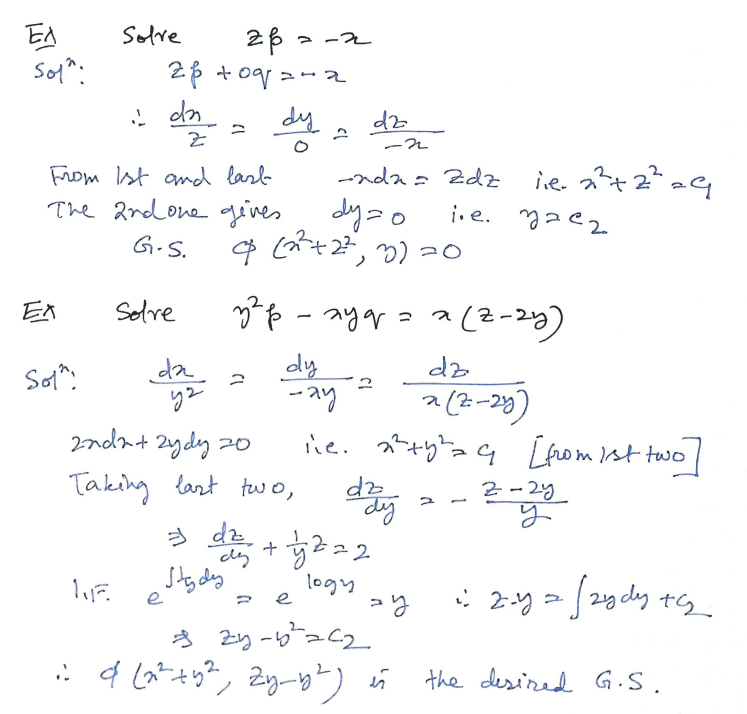 Ex Solve zp = -x
Solⁿ: zp + 0q = -x
∴ dx/z = dy/0 = dz/-x
From 1st and last -xdx = zdz i.e. x² + z² = c₁
The 2nd one gives dy = 0 i.e. y = c₂
G.S. φ (x² + z², y) = 0
Ex Solve y²p - xyq = x(z-2y)
Solⁿ: dx/y² = dy/-xy = dz/x(z-2y)
2xdx + 2ydy = 0 i.e. x² + y² = c₁ [from 1st two]
Taking last two, dz/dy = - (z-2y)/y
⇒ dz/dy + 1/y z = 2
I.F. e^∫1/y dy = e^log y = y ∴ z.y = ∫2y dy + c₂
⇒ zy - y² = c₂
∴ φ (x² + y², zy - y²) is the desired G.S.